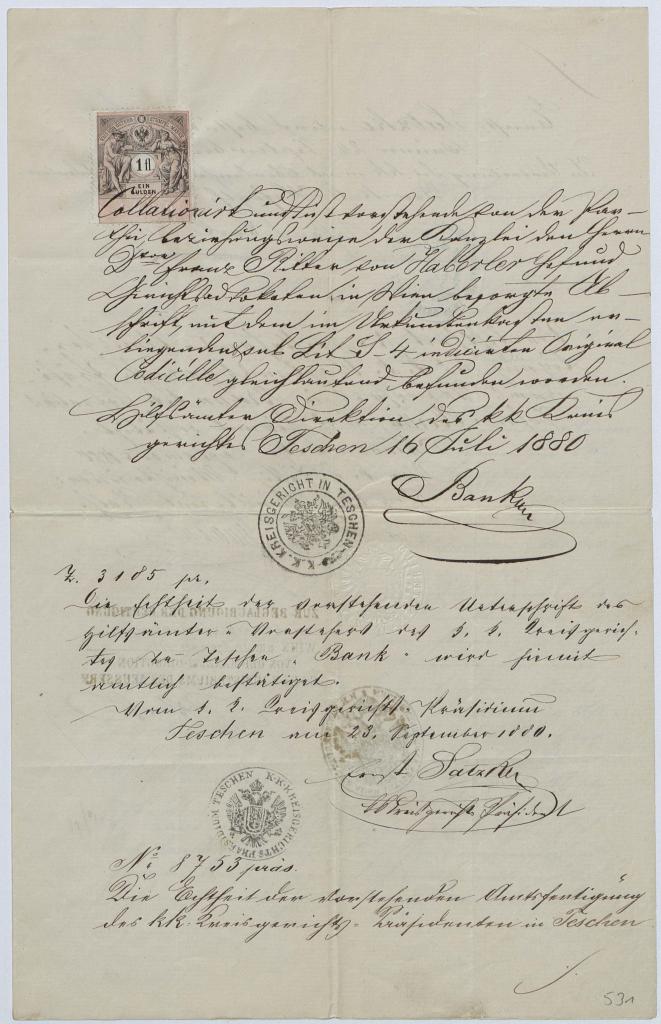 1 fl
EIN
GULDEN
Collationirt und ist vorstehende von der Par-
thei, beziehungsweise der Kanzlei des Herrn
Dtor Franz Ritter von Haberler Hof und
Gerichtsadvokaten in Wien besorgte Ab-
schrift, mit dem im Urkundenkasten er-
liegenden sub Lit S-4 indicirten Original
Codicille gleichlautend befunden worden.
Hilfsämter Direktion des kk Kreis
gerichtes Teschen 16 Juli 1880
Bank
K.K. KREISGERICHT IN TESCHEN
Z. 3185 pr.
Die Echtheit der vorstehenden Unterschrift des
Hilfsämter-Vorstehers des k. k. Kreisgerich-
tes in Teschen "Bank" wird hiemit
amtlich bestätiget.
Vom k. k. Kreisgerichts-Präsidium
Teschen am 23. September 1880.
Ernst
kk Kreisgerichts Präsident
K.K. KREISGERICHTS PRAESIDIUM TESCHEN
No 8753 präs.
Die Echtheit der vorstehenden Amtsfertigung
des kk. Kreisgerichts-Präsidenten in Teschen
531